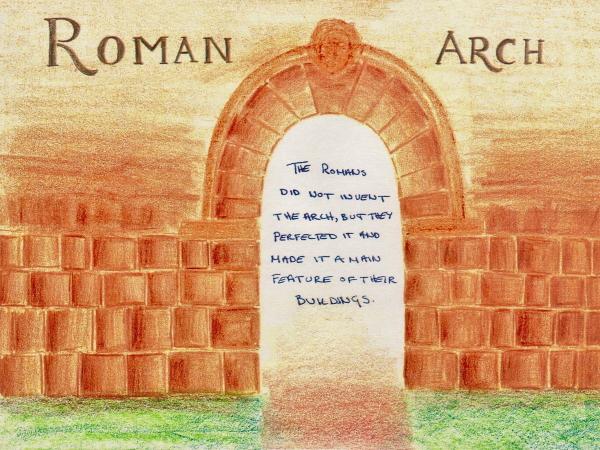 ROMAN ARCH
THE ROMANS
DID NOT INVENT
THE ARCH, BUT THEY
PERFECTED IT AND
MADE IT A MAIN
FEATURE OF THEIR
BUILDINGS.